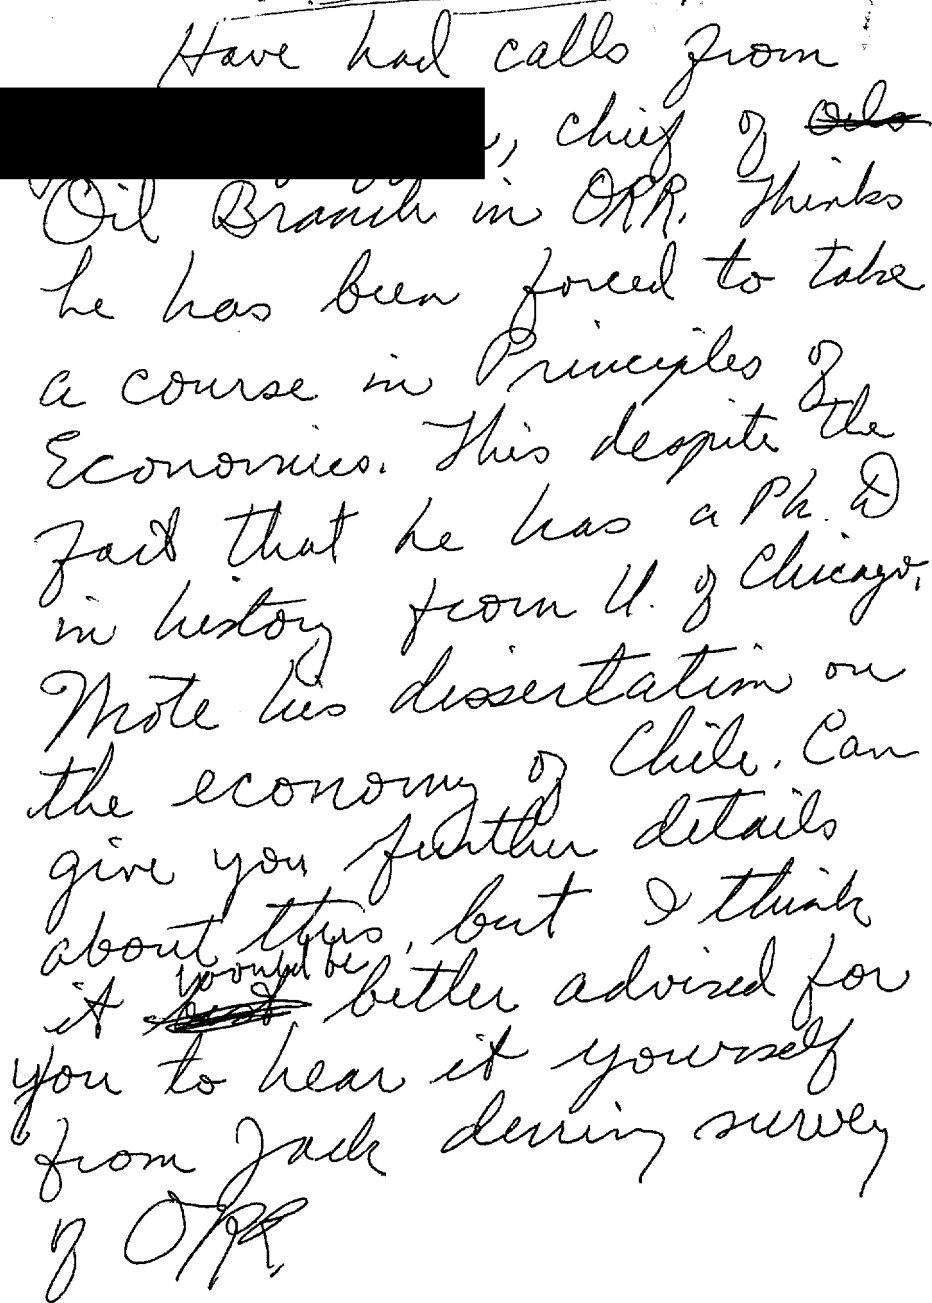 Have had calls from
, chief of Oil
Oil Branch in ORR. Thinks
he has been forced to take
a course in Principles of
Economics. This despite the
fact that he has a Ph. D
in history from U. of Chicago.
Wrote his dissertation on
the economy of Chile. Can
give you further details
about this, but I think
would be
it better advised for
you to hear it yourself
from Jack during survey
of ORR